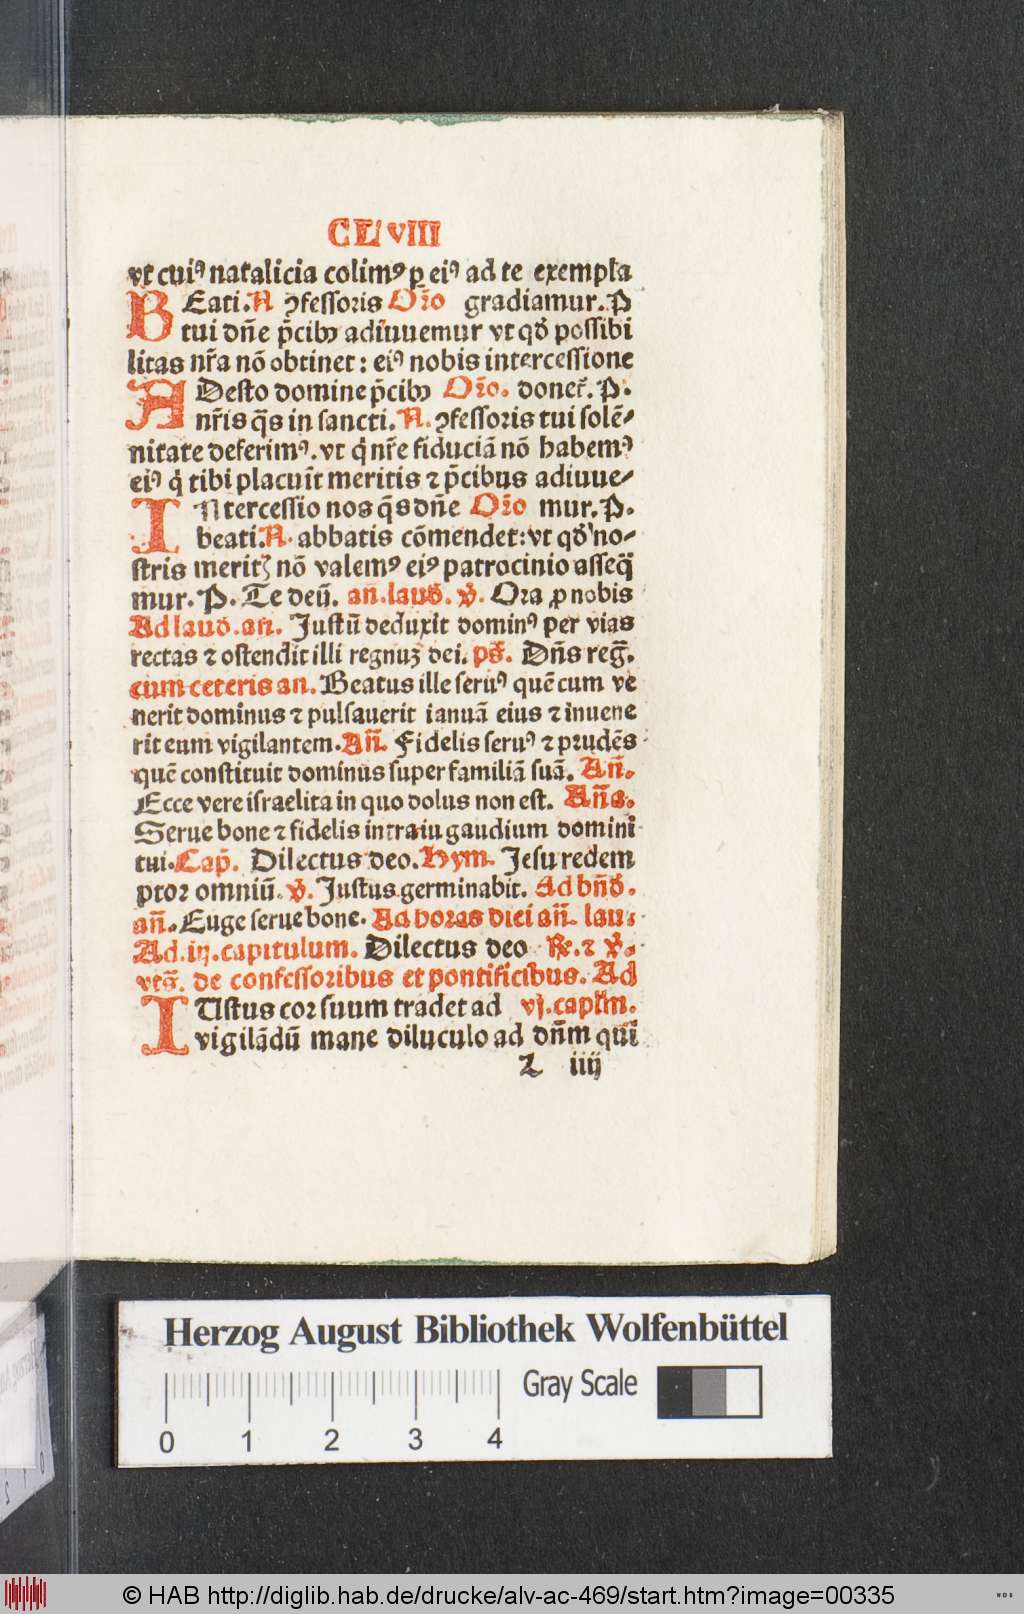 CLVIII
vt cuiꝰ natalicia colimꝰ ꝑ eiꝰ ad te exempla
BEati. N ꝯfessoris Or̄o gradiamur. P
tui dn̄e p̄cibꝫ adiuuemur vt qđ possibi
litas nr̄a nō obtinet: eiꝰ nobis intercessione
ADesto domine p̄cibꝫ Or̄o. donet̄. P.
nr̄is q̄s in sancti. N. ꝯfessoris tui solē⸗
nitate deferimꝰ. vt q̇ nr̄e fiduciā nō habemꝰ
eiꝰ q̇ tibi placuīt meritis ⁊ p̄cibus adiuue⸗
INtercessio nos q̄s dn̄e Or̄o mur. P.
beati. N. abbatis cōmendet: vt qđ no⸗
stris meritꝭ nō valemꝰ eiꝰ patrocinio asseq̄
mur. P. Te deū. an̄. lauđ. v̄. Ora ꝓ nobis
Ad lauđ. an̄. Justū deduxit dominꝰ per vias
rectas ⁊ ostendit illi regnuꝫ dei. ps̄. Dn̄s reḡ.
cum ceteris an. Beatus ille seruꝰ quē cum ve
nerit dominus ⁊ pulsauerit ianuā eius ⁊ inuene
rit eum vigilantem. An̄. Fidelis seruꝰ ⁊ prudēs
quē constituit dominus super familiā suā. An̄.
Ecce vere israelita in quo dolus non est. An̄a.
Serue bone ⁊ fidelis intra iu gaudium domini
tui. Cap̄. Dilectus deo. Hym. Jesu redem
ptor omniū. v̄. Justus germinabit. Ad bn̄đ.
an̄. Euge serue bone. Ad horas diei an̄. lau.
Ad. iij. capitulum. Dilectus deo ℟. ⁊ ℣.
vts̄. de confessoribus et pontificibus. Ad
IUstus cor suum tradet ad vj. caplm̄.
vigilādū mane diluculo ad dn̄m qui
Z iiij
Herzog August Bibliothek Wolfenbüttel
Gray Scale
0 1 2 3 4
© HAB http://diglib.hab.de/drucke/alv-ac-469/start.htm?image=00335